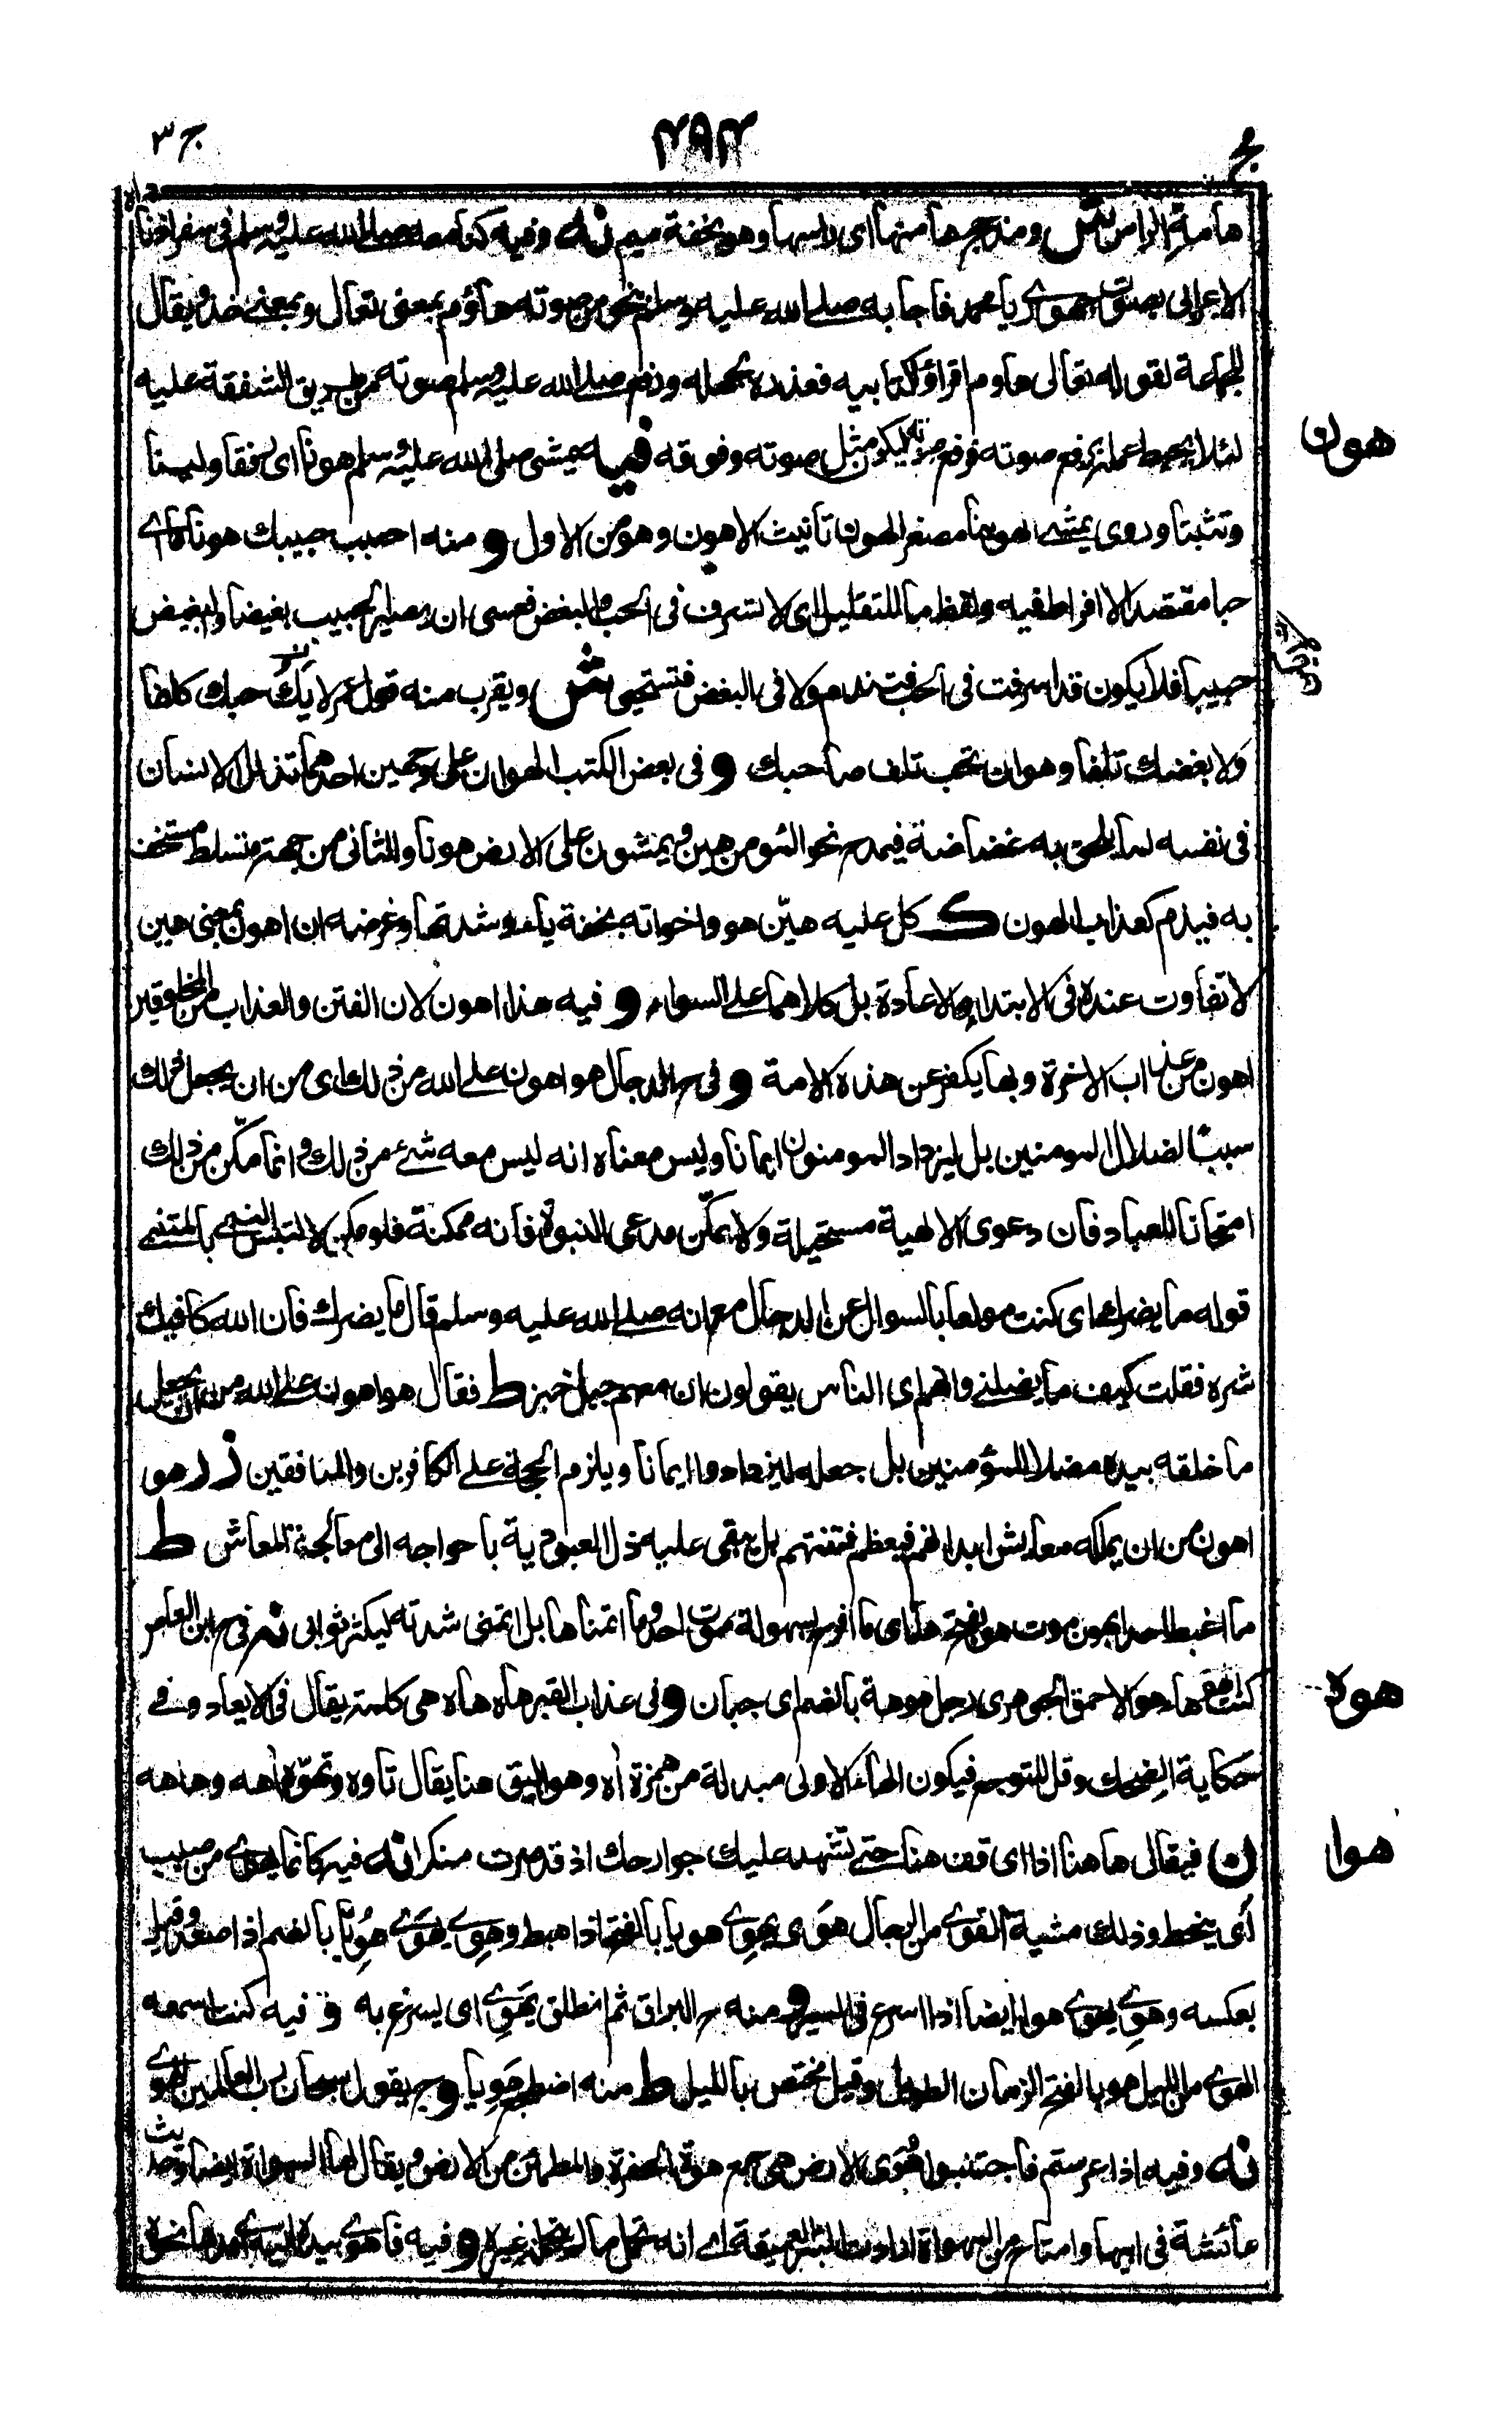 ج ٣
هامة الراس ش ومنه ح هامتها اى راسها وهو بخفة ميم نه وفيه كنا معه صلى الله عليه وسلم فى سفر اذ ناداه
الاعرابى بصوت جهورى يا محمد فاجابه صلى الله عليه وسلم بنحو من صوته هاؤم بمعنى تعال وبمعنى خذ ويقال
للجماعة لقوله تعالى هاؤم اقرؤا كتابيه فعذره بجهله ورفع صلى الله عليه وسلم صوته من طريق الشفقة عليه
هون
لئلا يحبط عمله برفع صوته فرفع صوته ليكون مثل صوته وفوقه فيه يمشى صلى الله عليه وسلم هونا اى رفقا ولينا
وتثبتا وروى يمشى الهوينا مصغر الهونا تانيث الاهون وهو من الاول و منه احبب حبيبك هونا ما اى
حبا مقتصدا لا افراط فيه ولفظ ما للتقليل اى لا تسرف فى الحب والبغض فعسى ان يصير الحبيب بغيضا والبغيض
حبيبا فلا يكون قد اسرفت فى الحب فتندم ولا فى البغض فتستحيى ش ويقرب منه قول عمر لا يك حبك كلفا
ولا بغضك تلفا وهو ان تحب تلف صاحبك و فى بعض الكتب الهوان على وجهين احدهما تذلل الانسان
فى نفسه لما لا يلحق به غضاضة فيمدح نحو المؤمن هين ويمشون على الارض هونا والثانى من جهة متسلط مستخف
به فيذم كعذاب الهون ك كل عليه هين هو واخواته بخفة ياء وشدتها وغرضه ان اهون بمعنى هين
لا تفاوت عنده فى الابتداء والاعادة بل كلاهما على السواء و فيه هذا اهون لان الفتن والعذاب من المخلوقين
اهون من عذاب الاخرة وبها يكفر عن هذه الامة و فى ح الدجال هو اهون على الله من ذلك اى من ان يجعل ذلك
سببا لضلال المومنين بل ليزداد المومنون ايمانا وليس معناه انه ليس معه شئ من ذلك وانما مكن من ذلك
امتحانا للعباد فان دعوى الالهية مستحيلة ولا يمكن مدعى النبوة فانه ممكنة فلو مكن لالتبس النبى بالمتنبى
قوله ما يضرك اى كنت مولعا بالسوال عن الدجال مع انه صلى الله عليه وسلم قال ما يضرك فان الله كافيك
شره فقلت كيف ما يضلنى وانهم اى الناس يقولون ان معهم جبل خبز ط فقال هو اهون على الله من ان يجعل
ما خلقه بيده مضلا للمؤمنين بل جعله ليزدادوا ايمانا ويلزم الحجة على الكافرين والمنافقين زر هو
اهون من ان يملكه معايش ابدانهم فيعظم فتنتهم بل يبقى عليه ذل العبودية باحواجه الى معالجة المعاش ط
ما اغبط احدا بهون موت هو بفتح هاء اى ما افرح بسهولة موت احد وما اتمناها بل اتمنى شدته ليكثر ثوابى نه فى ح ابن العاص
هوه
كنت الهوهاة هو الاحمق الجوهرى رجل هوهة بالضم اى جبان و فى عذاب القبر هاه هاه هى كلمة يقال فى الايعاد وفى
حكاية الضحك وقل للتوجع فيكون الهاء الاولى مبدلة من همزة اه وهو اليق هنا يقال تاوه وتهوه اهه وهاهه
هوا
ن فيقال ها هنا اذا اى قف هنا حتى تشهد عليك جوارحك اذ قد صرت منكرا نه فيه كانما يهوى من صبب
اى ينحط وذلك مشية القوى من الرجال هَوَى يهوِى هويا بالفتح اذا هبط وهوِى يهوَى هُوِيّا بالضم اذا صعد وقيل
بعكسه وهوى يهوى هوا ايضا اذا اسرع فى السير و منه ح البراق ثم انطلق يهوِى اى يسرع به و فيه كنت اسمعه
الهوى من الليل هو بالفتح الزمان الطويل وقيل مختص بالليل ط منه اضطجع هويا و ح يقول سبحان رب العالمين الهوى
نه وفيه اذا عرستم فاجتنبوا هُوَى الارض هى جمع هوة الحفرة والمطمئن من الارض ويقال لها المهواة ايضا وحديث
عائشة فى ابيها وامتاح من المهواة ارادت البئر العميقة اى انه تحمل ما لم يتحمل غيره و فيه فاهوى بيده اليه اى مدها نحوه